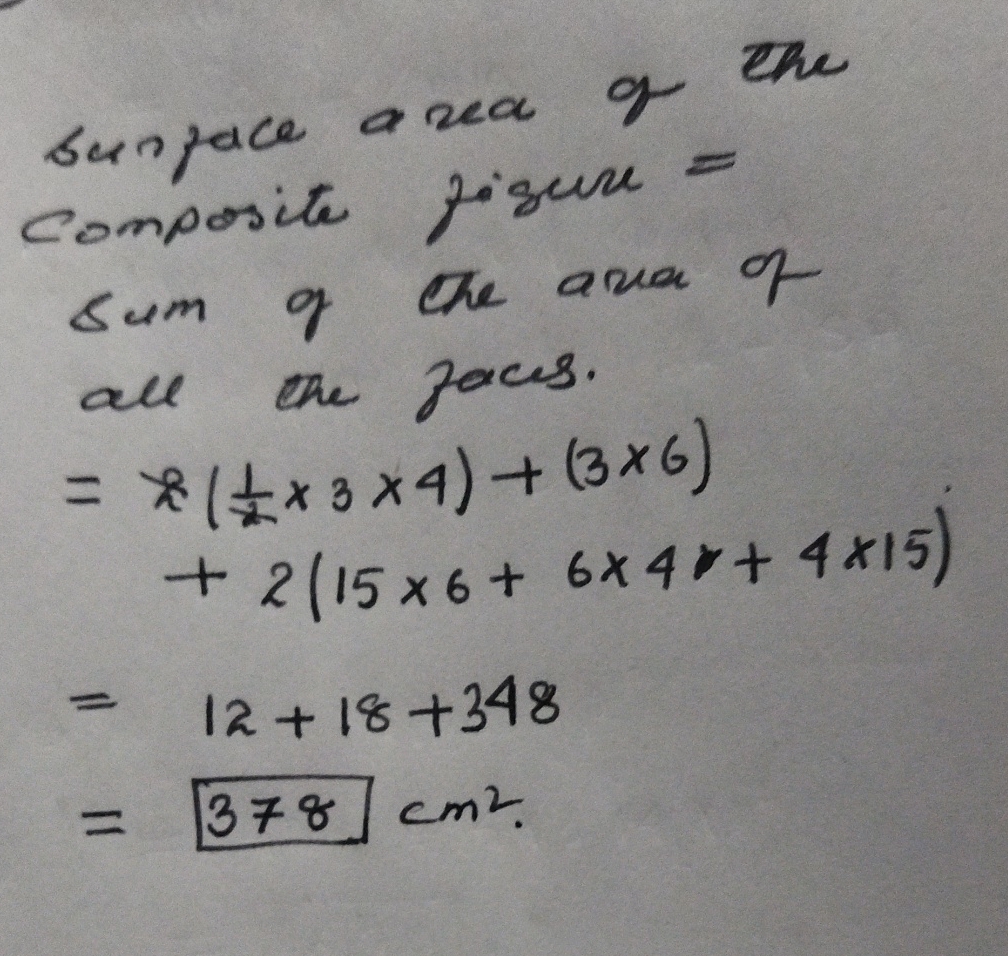 surface area of the
Composite figure =
Sum of the area of
all the faces.
= 2 (1/2 × 3 × 4) + (3×6)
+ 2(15 × 6 + 6×4 + 4×15)
= 12 + 18 + 348
= 378 cm².